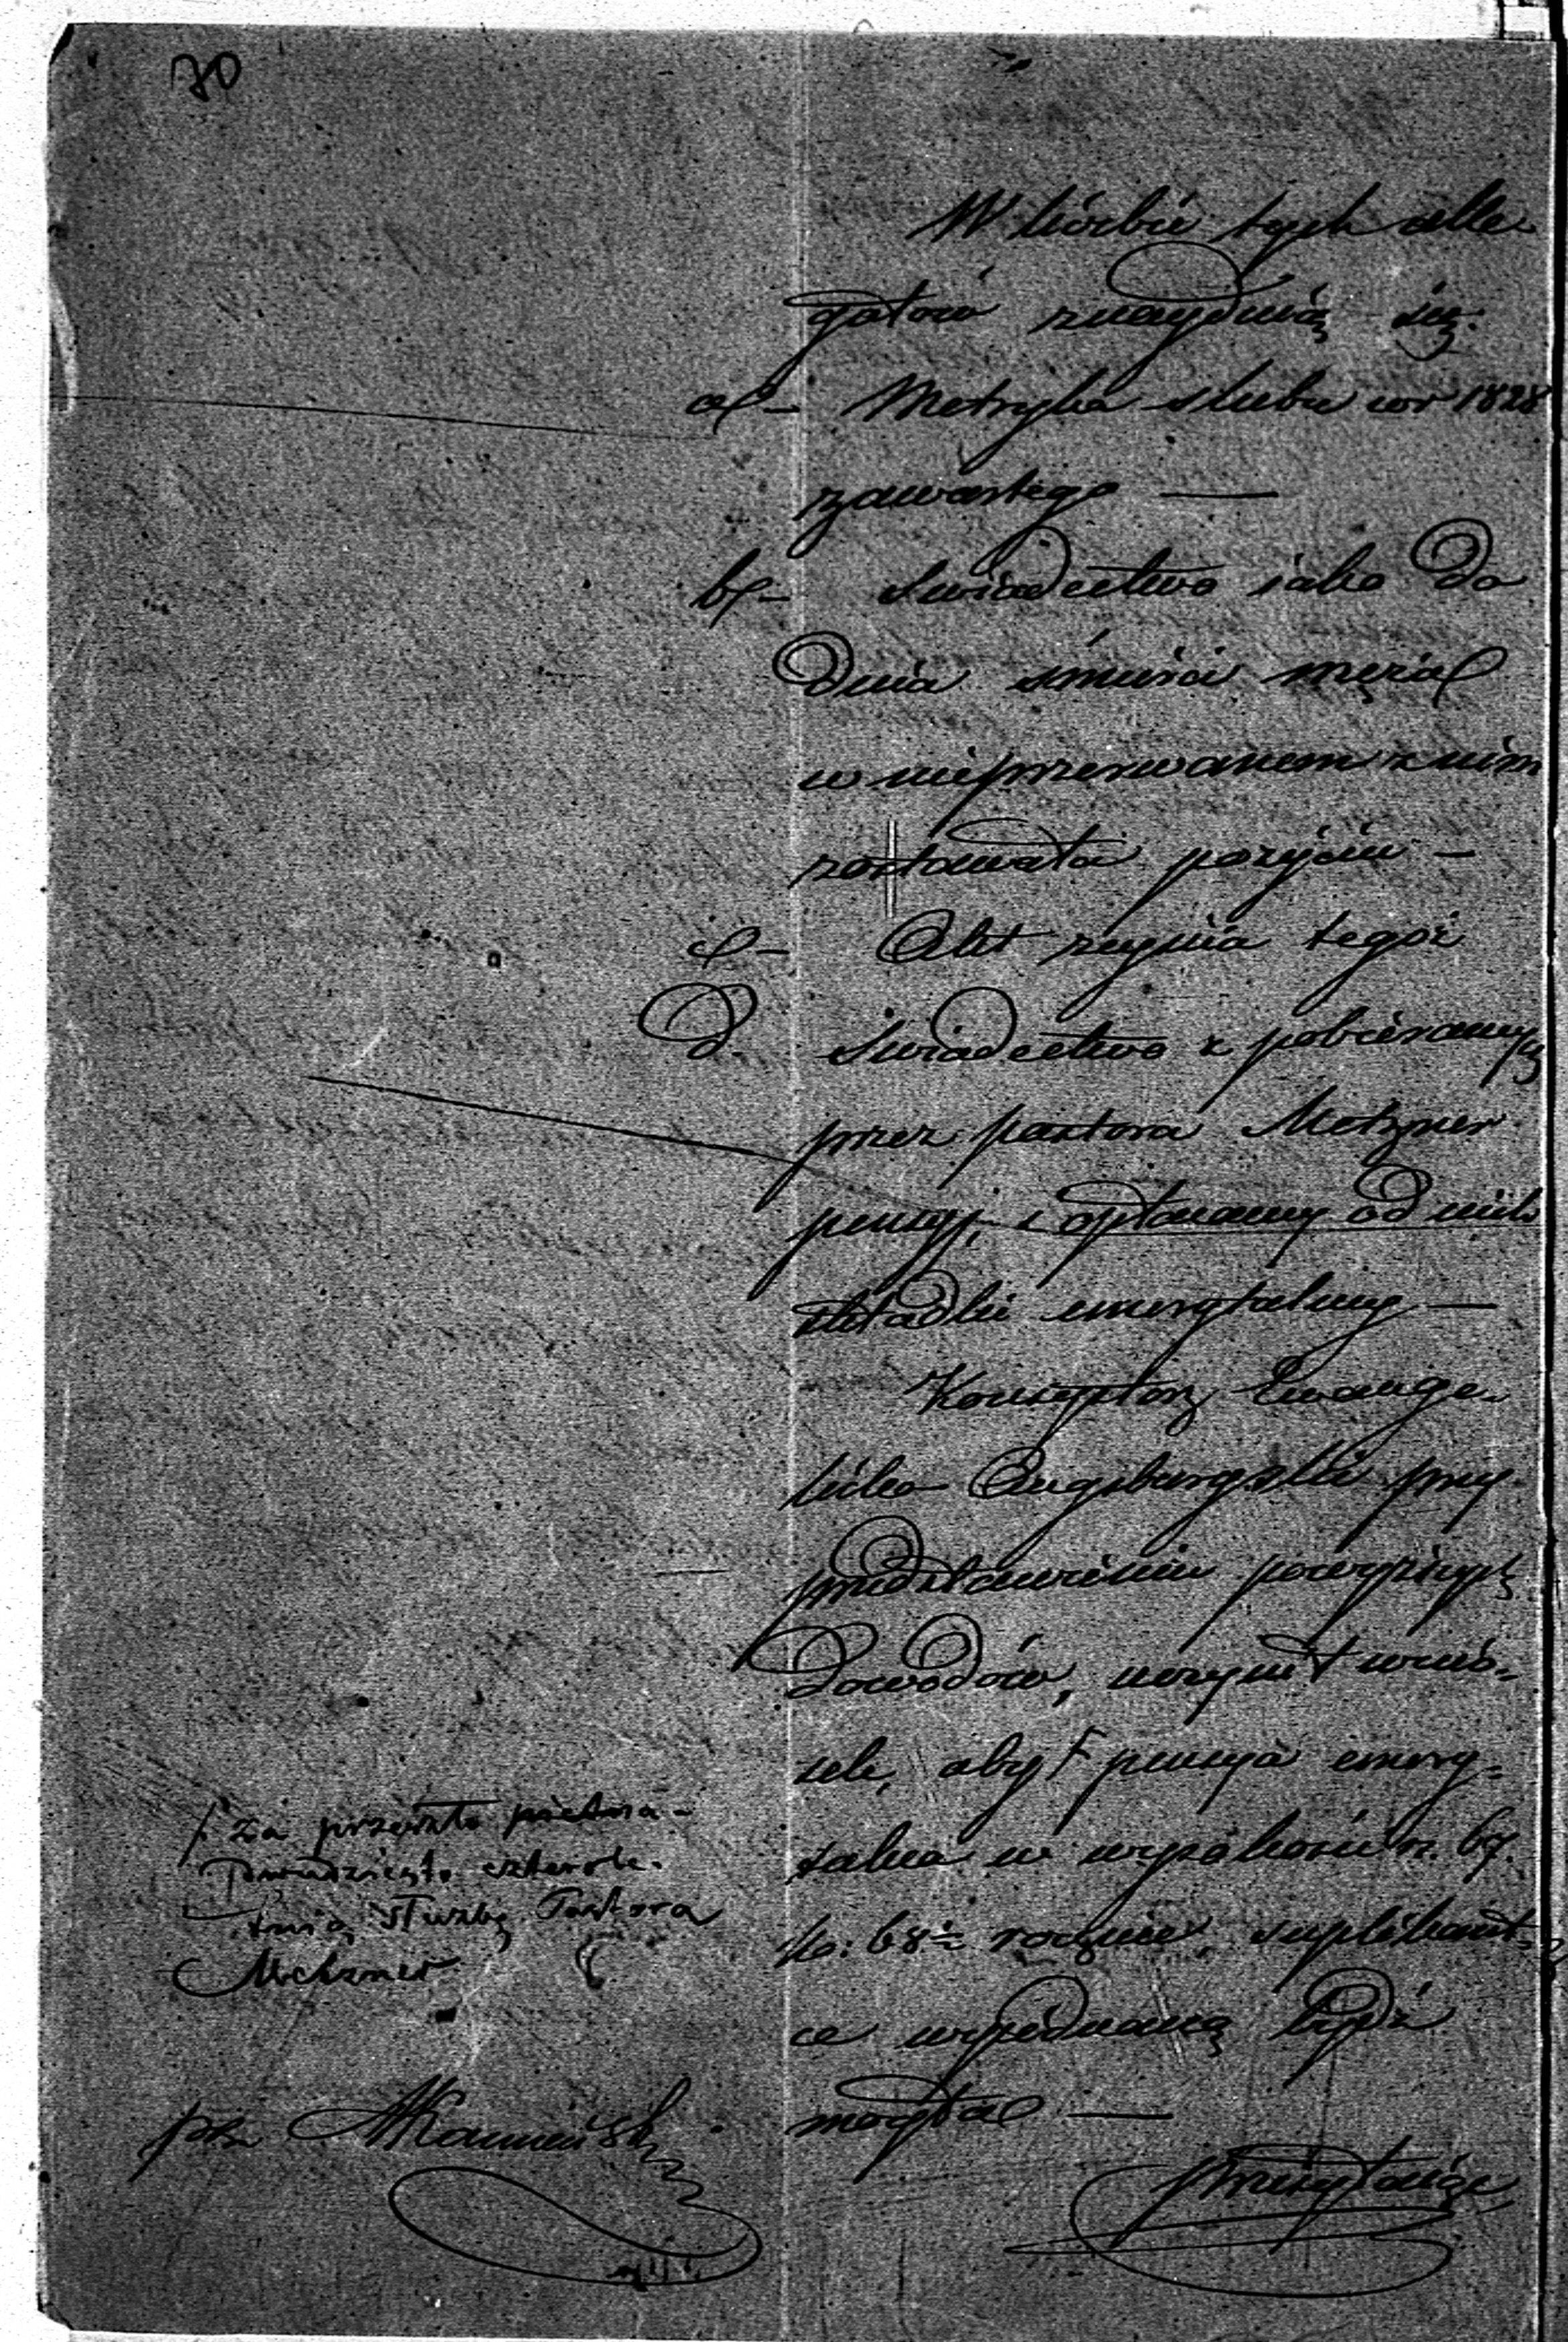 70
W liczbie tych alle-
gatów znayduią się.
a/- Metryka slubu w r 1828
zawartego —
b/- Swiadectwo iako do
dnia śmierci męża
w nieprzerwanem z nim
zostawała pożyciu —
c/- Akt zeyścia tegoż
d. Swiadectwo z pobieranych
przez pastora Metzner
pensyi, i opłacaney od nich
składki emerytalney —
Konsystorz Ewange-
licko Augsburgski przy
przedstawieniu powyższych
dowodów, uczynił wnio-
sek, aby F pensya emery-
talna w wysokości r. s.
k: 68½ rocznie, suplikant-
ce wyiednaną bydź
mogła —
F. za przeszło
dwudziesto cztero le-
tnią służbę Pastora
Metzner